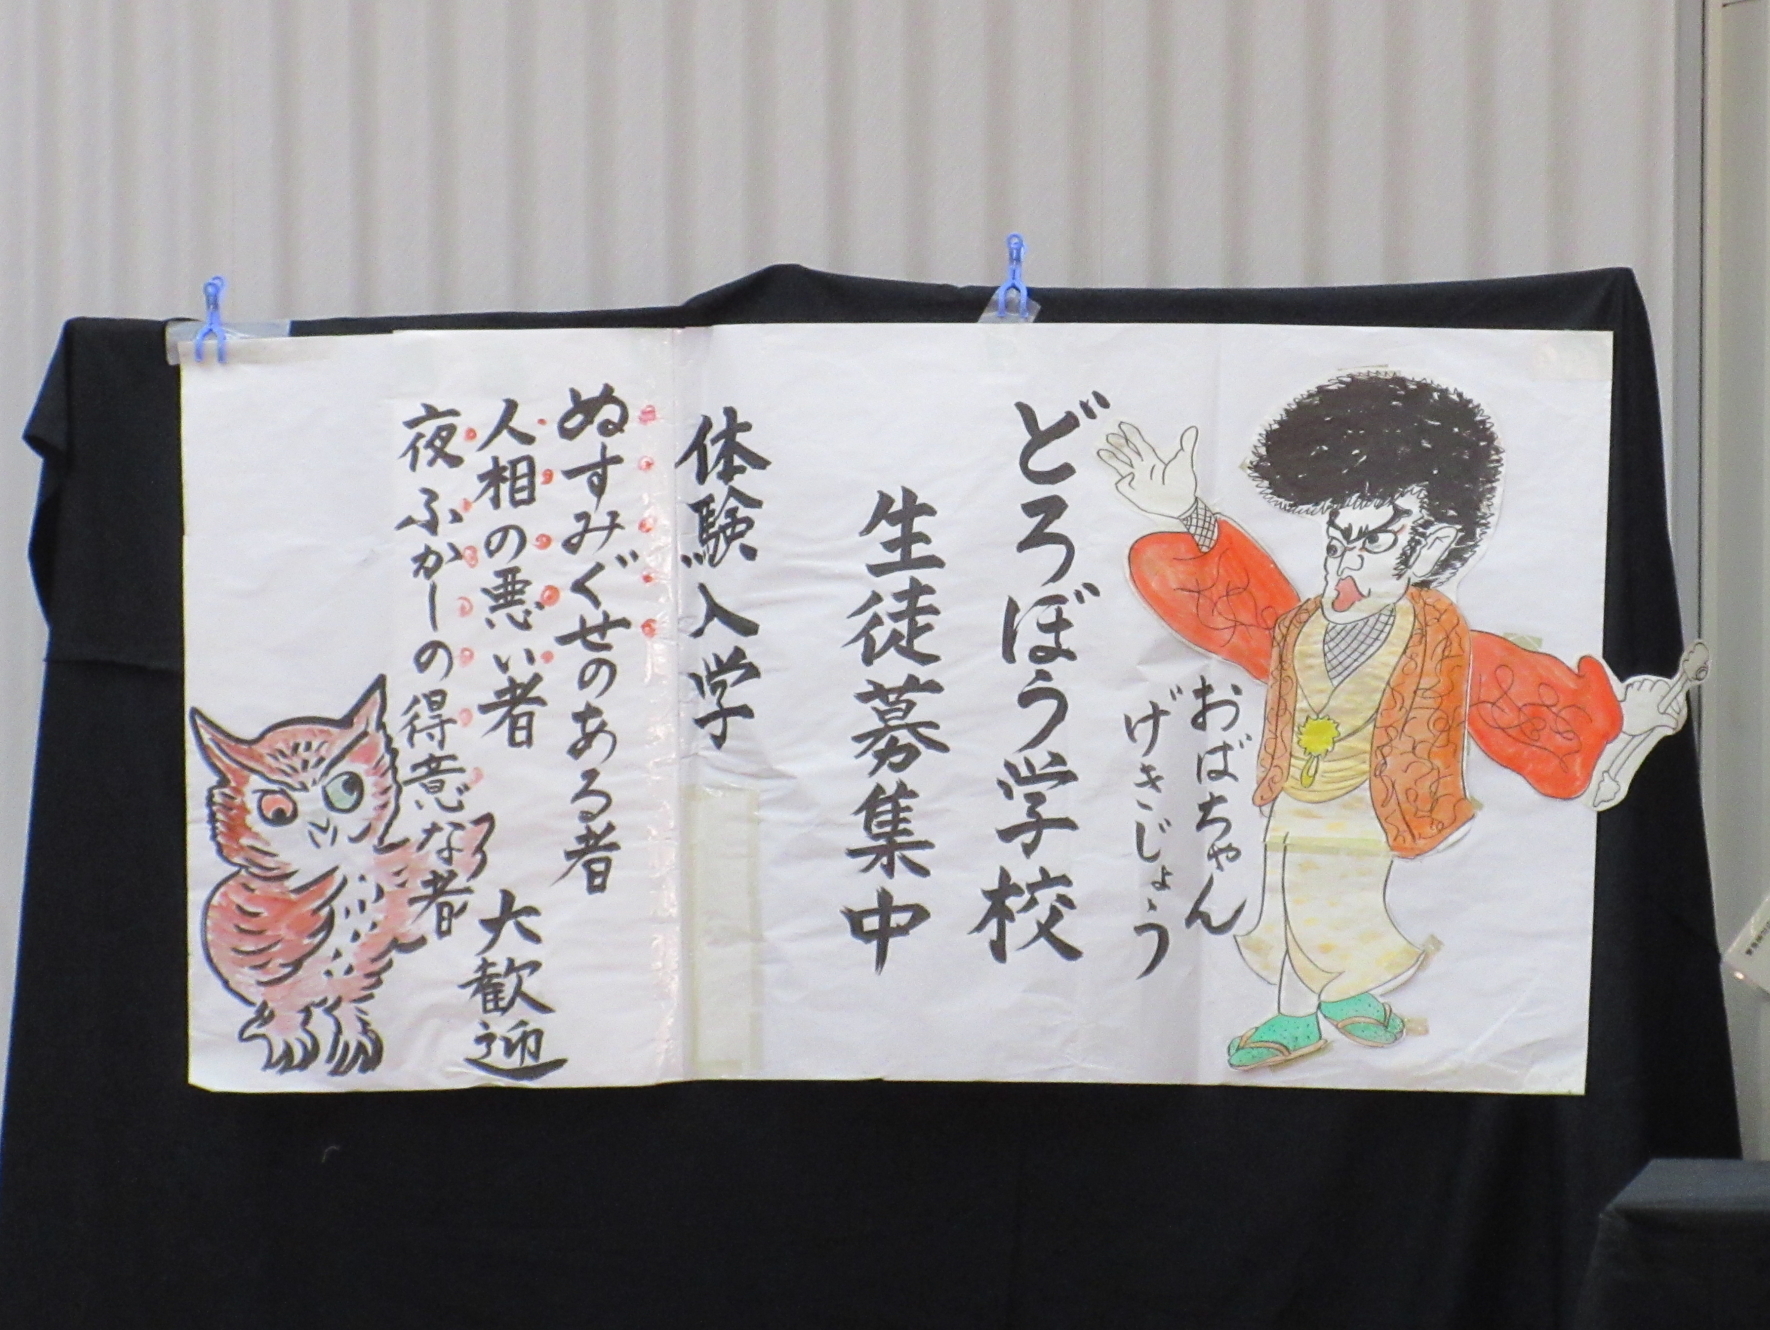 おばちゃん
げきじょう
どろぼう学校
生徒募集中
体験入学
ぬすみぐせのある者
人相の悪い者
夜ふかしの得意な者
大歓迎